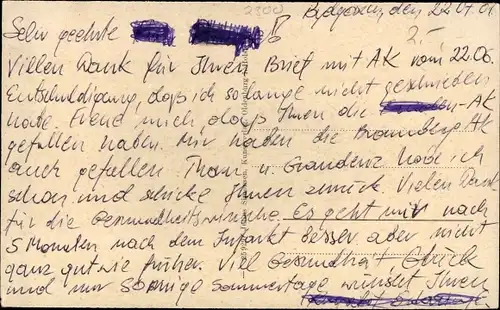 Bydgoszcz, den 22.07.01
2300
2.-
Sehr geehrte
Vielen Dank für Ihren Brief mit AK vom 22.06.
Entschuldigung, daß ich so lange nicht geschrieben
habe. Freue mich, daß Ihnen die -AK
gefallen haben. Mir haben die Bromberg AK
auch gefallen Thorn u. Graudenz habe ich
schon und schicke Ihnen zurück. Vielen Dank
für die Gesundheitswünsche. Es geht mir nach
5 Monaten nach dem Infarkt besser aber nicht
ganz gut wie früher. Viel Gesundheit Glück
und nur sonnige Sommertage wünscht Ihnen